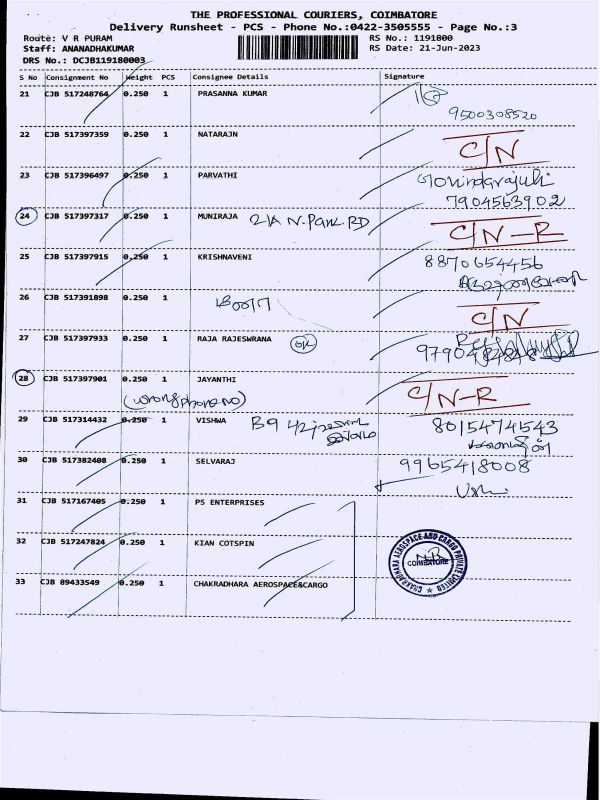 THE PROFESSIONAL COURIERS, COIMBATORE
Delivery Runsheet - PCS - Phone No.:0422-3505555 - Page No.:3
Route: V R PURAM RS No.: 1191800
Staff: ANANADHAKUMAR RS Date: 21-Jun-2023
DRS No.: DCJB119180003
S No Consignment No Weight PCS Consignee Details Signature
21 CJB 517248764 0.250 1 PRASANNA KUMAR
9500308520
22 CJB 517397359 0.250 1 NATARAJN C/N
23 CJB 517396497 0.250 1 PARVATHI Govindarajulu
7904563902
24 CJB 517397317 0.250 1 MUNIRAJA 21A N.Park.RD C/N-R
25 CJB 517397915 0.250 1 KRISHNAVENI 8870654456
26 CJB 517391898 0.250 1 C/N
27 CJB 517397933 0.250 1 RAJA RAJESWRANA
28 CJB 517397901 0.250 1 JAYANTHI C/N-R
(wrong phone no)
29 CJB 517314432 0.250 1 VISHWA B9 42 8015474543
30 CJB 517382408 0.250 1 SELVARAJ 9965418008
31 CJB 517167405 0.250 1 PS ENTERPRISES
32 CJB 517247824 0.250 1 KIAN COTSPIN
33 CJB 89433549 0.250 1 CHAKRADHARA AEROSPACE&CARGO
CHAKRADHARA AEROSPACE AND CARGO PRIVATE LIMITED
COIMBATORE